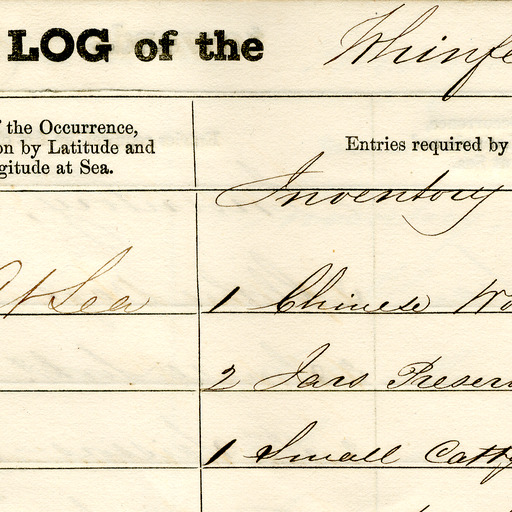 LOG of the Whinfe
f the Occurrence,
on by Latitude and
gitude at Sea.
Entries required by
Inventory
At Sea
1 Chinese Wo
2 Jars Preser
1 Small Catty